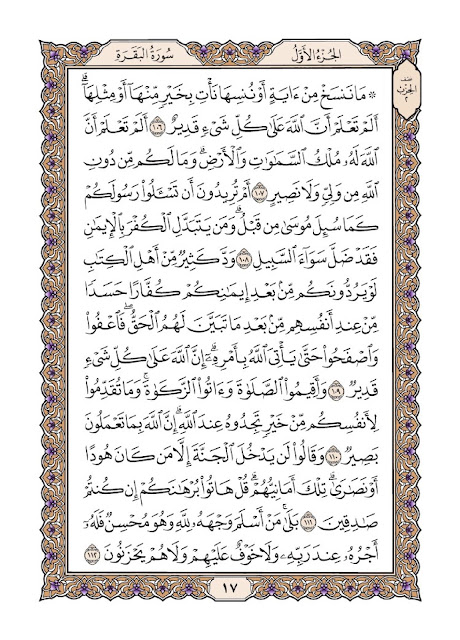 سورة البقرة
الجزء الأول
نصف
الحزب
٢
۞ مَا نَنسَخْ مِنْ ءَايَةٍ أَوْ نُنسِهَا نَأْتِ بِخَيْرٍ مِّنْهَآ أَوْ مِثْلِهَآۗ
أَلَمْ تَعْلَمْ أَنَّ ٱللَّهَ عَلَىٰ كُلِّ شَىْءٍ قَدِيرٌ ١٠٦ أَلَمْ تَعْلَمْ أَنَّ
ٱللَّهَ لَهُۥ مُلْكُ ٱلسَّمَٰوَٰتِ وَٱلْأَرْضِۗ وَمَا لَكُم مِّن دُونِ
ٱللَّهِ مِن وَلِىٍّ وَلَا نَصِيرٍ ١٠٧ أَمْ تُرِيدُونَ أَن تَسْـَٔلُوا۟ رَسُولَكُمْ
كَمَا سُئِلَ مُوسَىٰ مِن قَبْلُۗ وَمَن يَتَبَدَّلِ ٱلْكُفْرَ بِٱلْإِيمَٰنِ
فَقَدْ ضَلَّ سَوَآءَ ٱلسَّبِيلِ ١٠٨ وَدَّ كَثِيرٌ مِّنْ أَهْلِ ٱلْكِتَٰبِ
لَوْ يَرُدُّونَكُم مِّنۢ بَعْدِ إِيمَٰنِكُمْ كُفَّارًا حَسَدًا
مِّنْ عِندِ أَنفُسِهِم مِّنۢ بَعْدِ مَا تَبَيَّنَ لَهُمُ ٱلْحَقُّۖ فَٱعْفُوا۟
وَٱصْفَحُوا۟ حَتَّىٰ يَأْتِىَ ٱللَّهُ بِأَمْرِهِۦٓۗ إِنَّ ٱللَّهَ عَلَىٰ كُلِّ شَىْءٍ
قَدِيرٌ ١٠٩ وَأَقِيمُوا۟ ٱلصَّلَوٰةَ وَءَاتُوا۟ ٱلزَّكَوٰةَۚ وَمَا تُقَدِّمُوا۟
لِأَنفُسِكُم مِّنْ خَيْرٍ تَجِدُوهُ عِندَ ٱللَّهِۗ إِنَّ ٱللَّهَ بِمَا تَعْمَلُونَ
بَصِيرٌ ١١٠ وَقَالُوا۟ لَن يَدْخُلَ ٱلْجَنَّةَ إِلَّا مَن كَانَ هُودًا
أَوْ نَصَٰرَىٰۗ تِلْكَ أَمَانِيُّهُمْۗ قُلْ هَاتُوا۟ بُرْهَٰنَكُمْ إِن كُنتُمْ
صَٰدِقِينَ ١١١ بَلَىٰۚ مَنْ أَسْلَمَ وَجْهَهُۥ لِلَّهِ وَهُوَ مُحْسِنٌ فَلَهُۥٓ
أَجْرُهُۥ عِندَ رَبِّهِۦ وَلَا خَوْفٌ عَلَيْهِمْ وَلَا هُمْ يَحْزَنُونَ ١١٢
١٧